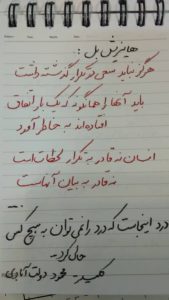 هانریش بل :
هرگز نباید سعی در تکرار گذشته داشت
باید آنها را همانگونه که یک بار اتفاق
افتاده‌اند به خاطر آورد
انسان نه قادر به تکرار لحظات است
نه قادر به بیان آنهاست
درد اینجاست که درد را نمی‌توان به هیچ کس
حالی کرد
کلیدر - محمود دولت آبادی